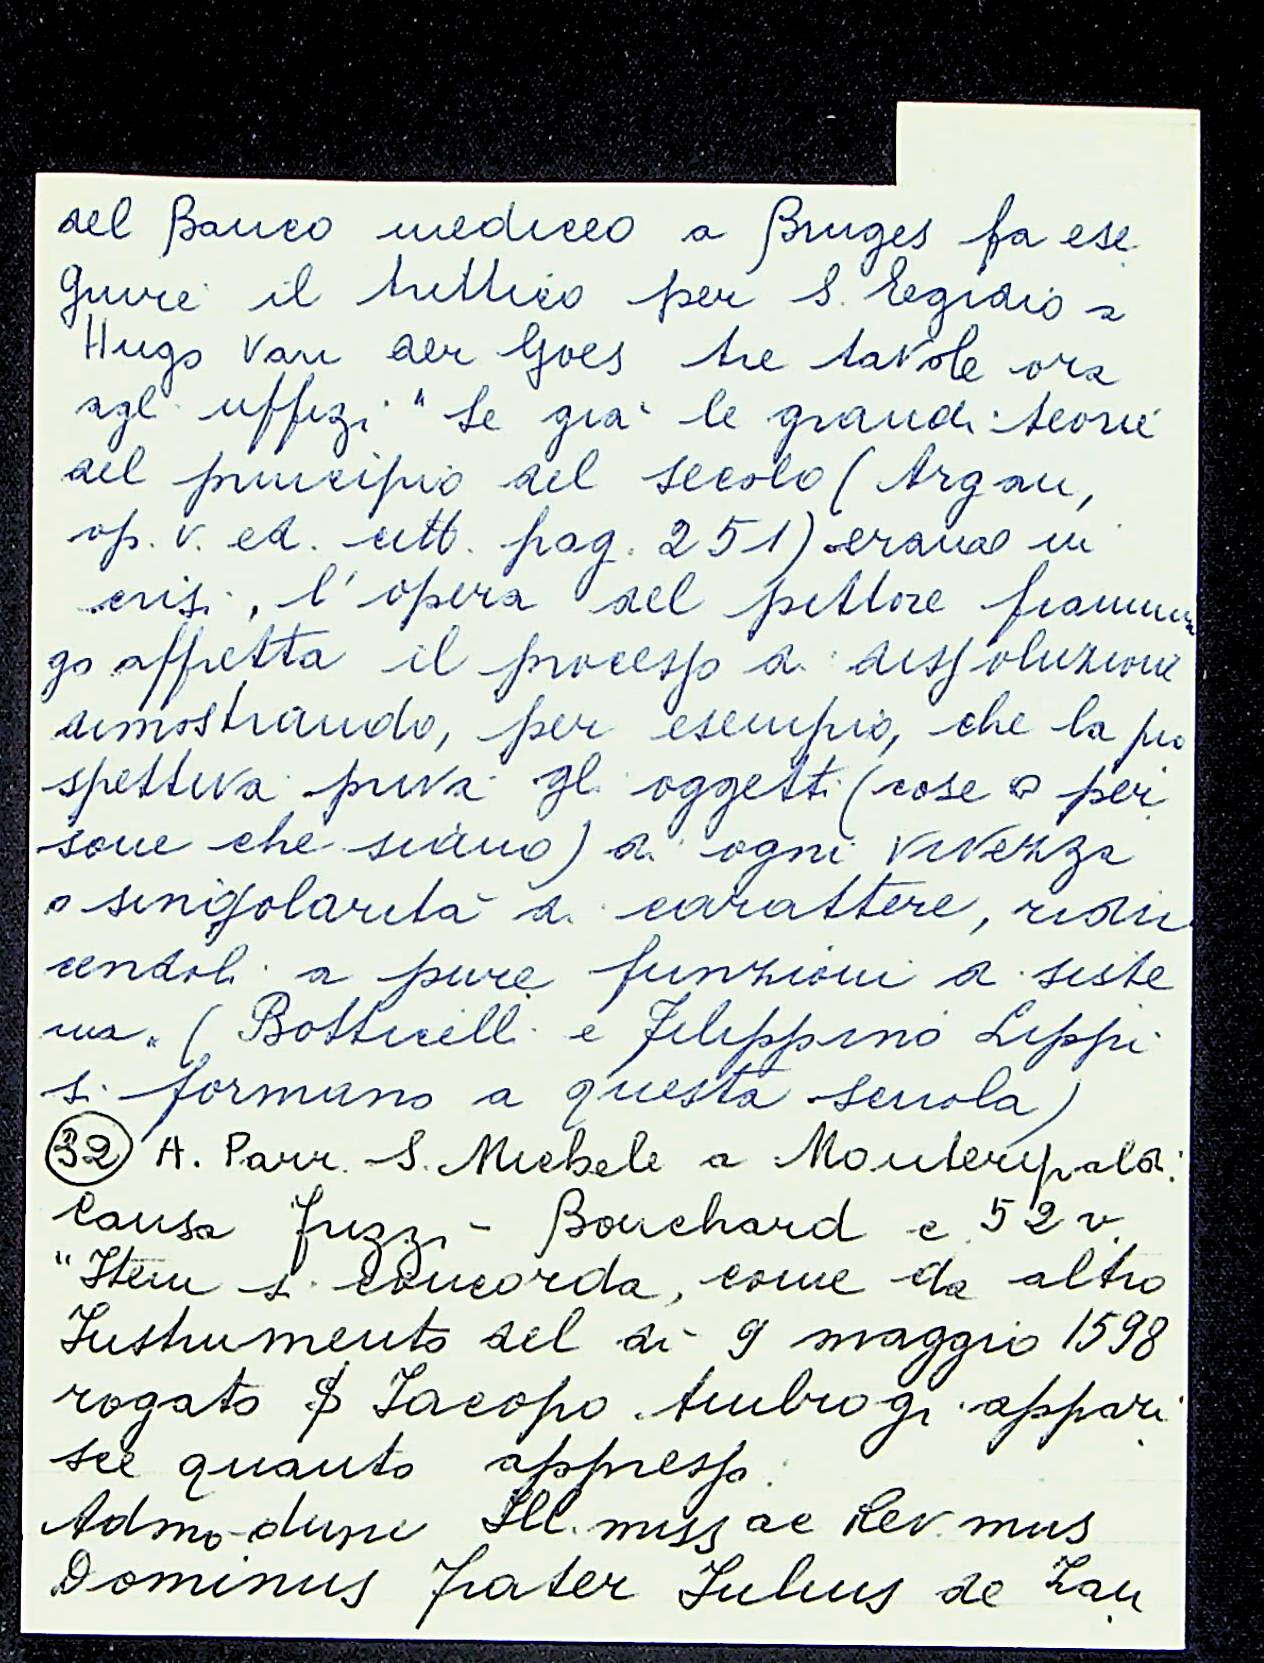 del Banco mediceo a Bruges fa ese
guire il trittico per S. Egidio a
Hugo Van der Goes tre tavole ora
agli uffizi "Se già le grandi teorie
del principio del secolo (Argan,
op. v. ed. citt. pag. 251) erano in
crisi, l'opera del pittore fiammin
go affretta il processo di dissoluzione
dimostrando, per esempio, che la pro
spettiva priva gli oggetti (cose o per
sone che siano) di ogni vivezza
o singolarità di carattere, ridu
cendoli a pure funzioni di siste
ma" (Botticelli e Filippino Lippi
si formano a questa scuola)
32 A. Parr. S. Michele a Monteripaldi:
Causa Fuzzi - Bouchard c. 52 v.
"Item si concorda, come da altro
Instrumento del dì 9 maggio 1598
rogato Iacopo Ambrogi appari
sce quanto appresso:
Admo-dum Ill.miss ac Rev.mus
Dominus Frater Iulius de Zan